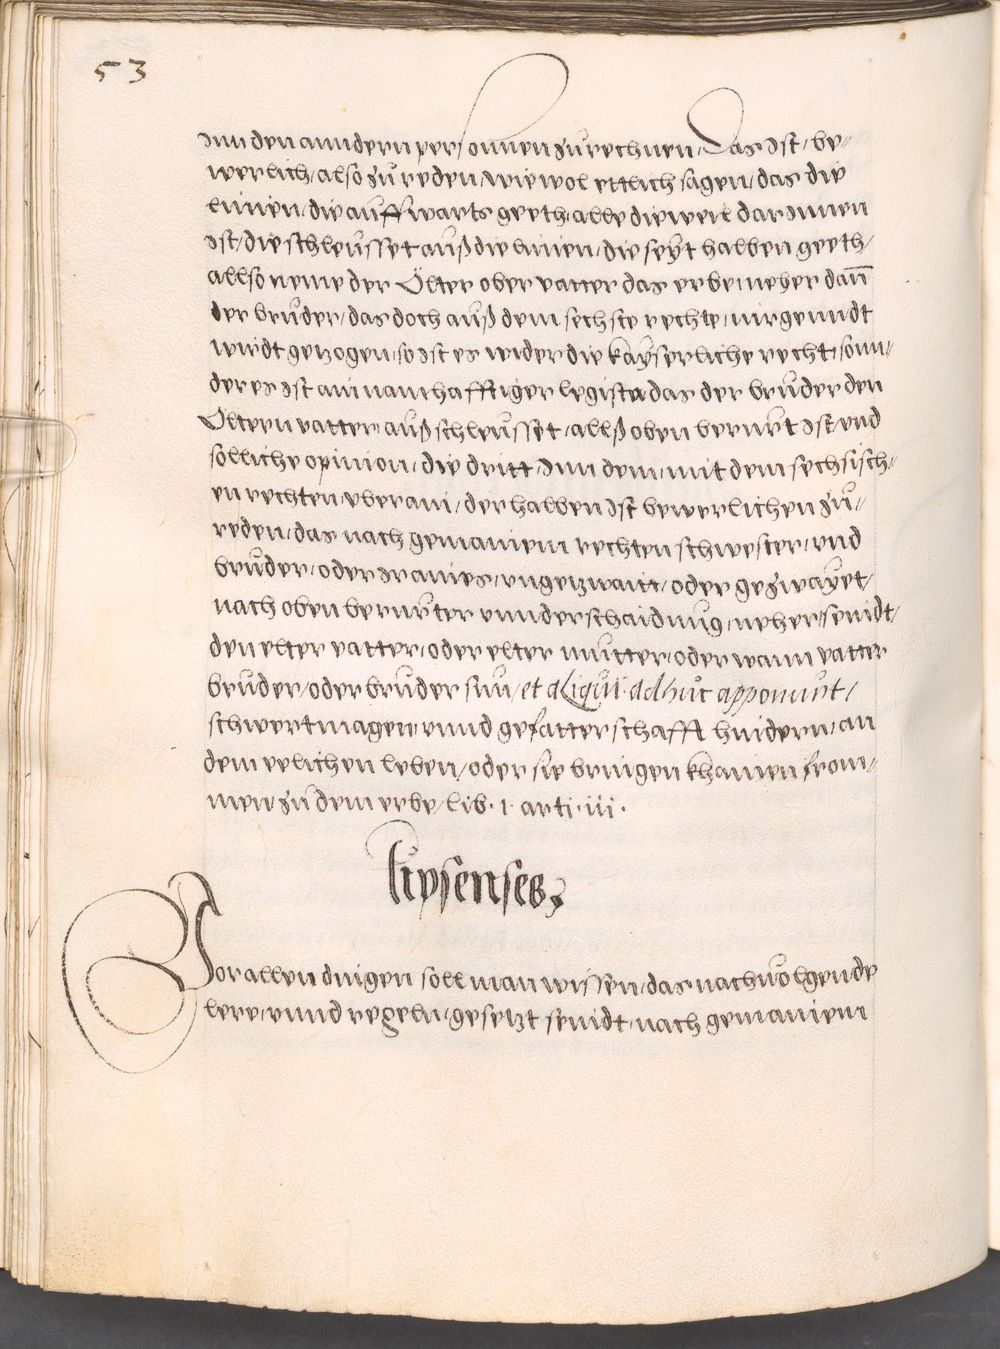 53
Inn den anndern personnen zu rechnen, Das Ist, be-
werlich, also zu reden, wiewol ettlich sagen, das die
linien, die auffwarts geeth, alle die weil dar Innen
Ist, die schleusset auß die linien, die seyt halben geeth,
allso neme der Ölter ober vatter das erbe meher dañ
der bruder, das doch auß dem sechste rechte, nirgenndt
wirdt gezogen, so Ist es wider die kayserliche recht, sonn-
der es Ist ain namhafftiger legista das der bruder den
Öltern vatter außschleusset, allß oben berurt Ist, vnd
solliche opinion, die dritt, Inn dem, mit dem sechsisch-
en rechten vberain, der halben Ist bewerlichen zu-
reden, das nach gemainem rechten schwester, vnd
bruder, oder Iraines, vngezwait, oder gezwayet,
nach oben berurter vnnderschaidung, neher, seindt,
den elter vatter, oder elter mutter, oder wann vatter
bruder, oder bruder sun, et aliqui adhuc apponunt,
schwertmagen, vnnd gefatterschafft hindern, an
dem eelichen leben, oder sie bringen khainen from-
men, zu dem erbe, lib. 1. arti. iii.
lipsenses
Vor allen dingen soll man wissen, das nachuolgende
lere, vnnd regeln, gesetzt seindt, nach gemainem